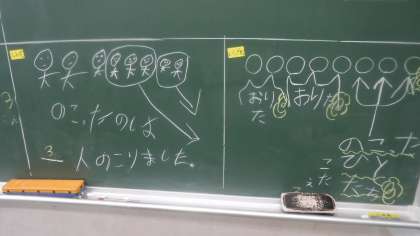 のこったのは
3人のこりました。
おり
た
おりた
のこった
ひと
たち
こた
え